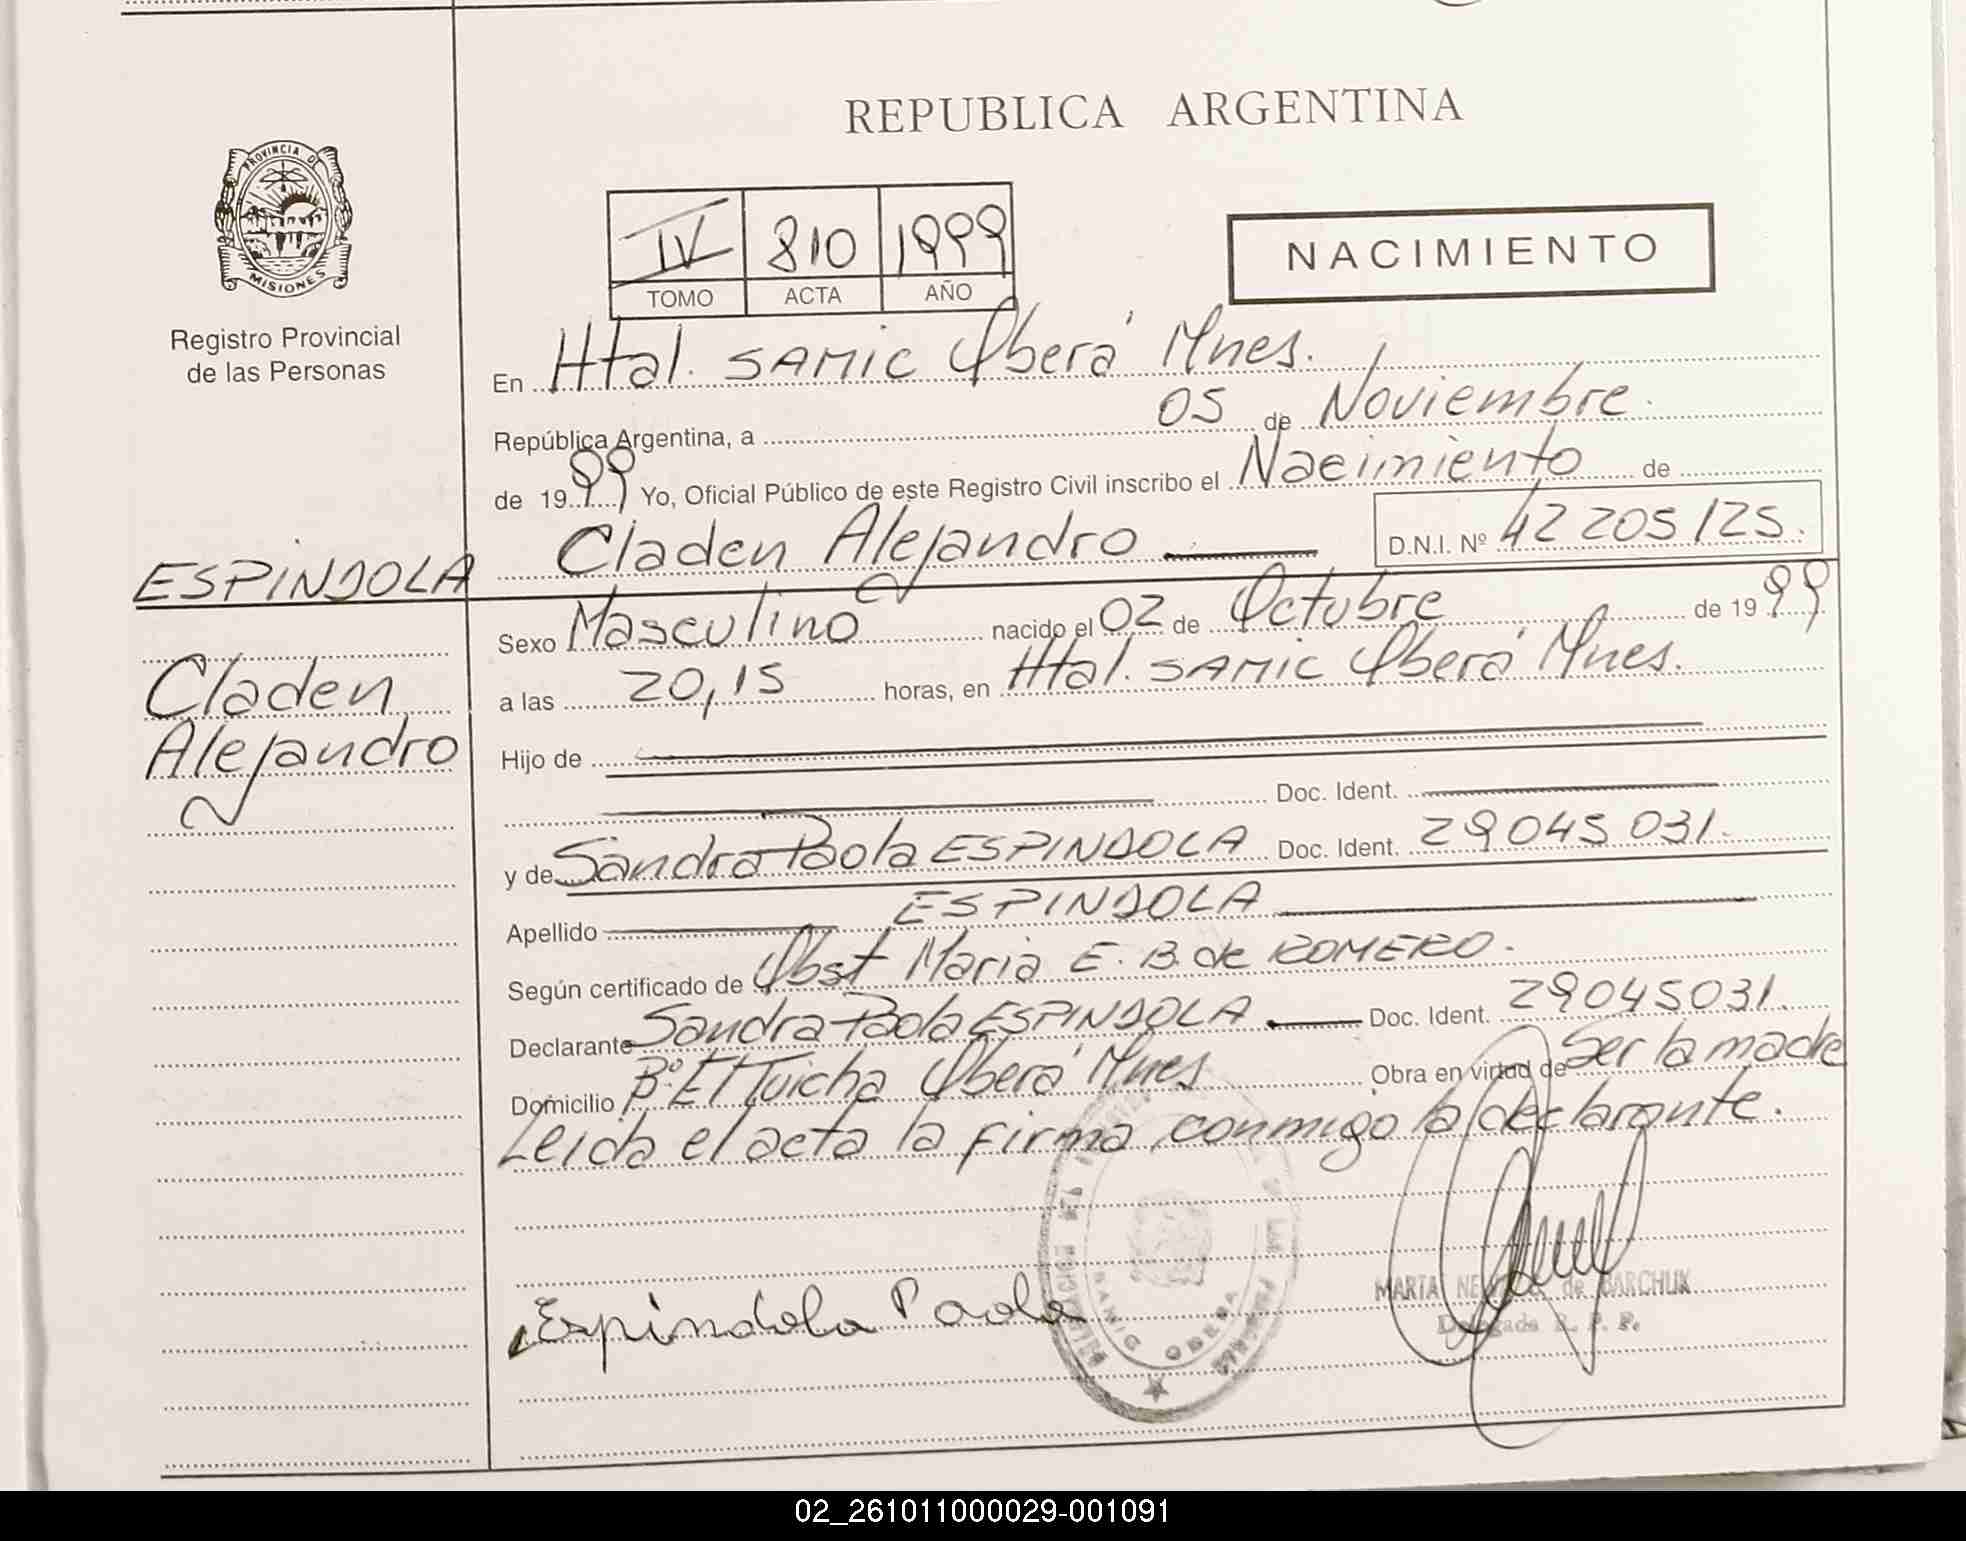 REPUBLICA ARGENTINA
PROVINCIA DE
MISIONES
Registro Provincial
de las Personas
IV 810 1999
TOMO ACTA AÑO
NACIMIENTO
En Htal. SAMIC Oberá Mnes.
República Argentina, a 05 de Noviembre.
de 1999 Yo, Oficial Público de este Registro Civil inscribo el Nacimiento de
Claden Alejandro D.N.I. Nº 42 205 125.
ESPINDOLA
Claden
Alejandro
Sexo Masculino nacido el 02 de Octubre de 1999
a las 20,15 horas, en Htal. SAMIC Oberá Mnes.
Hijo de
Doc. Ident.
y de Sandra Paola ESPINDOLA Doc. Ident. 29 045 031.
Apellido ESPINDOLA
Según certificado de Obst Maria E. B. de ROMERO.
Declarante Sandra Paola ESPINDOLA Doc. Ident. 29045031.
Domicilio Bº El Tuicha Oberá Mnes Obra en virtud de Ser la madre
Leida el acta la firma conmigo la declarante.
Espindola Paola
SAMIC OBERA
MARTA de BARCHUK
Delegada R. P. P.
02_261011000029-001091